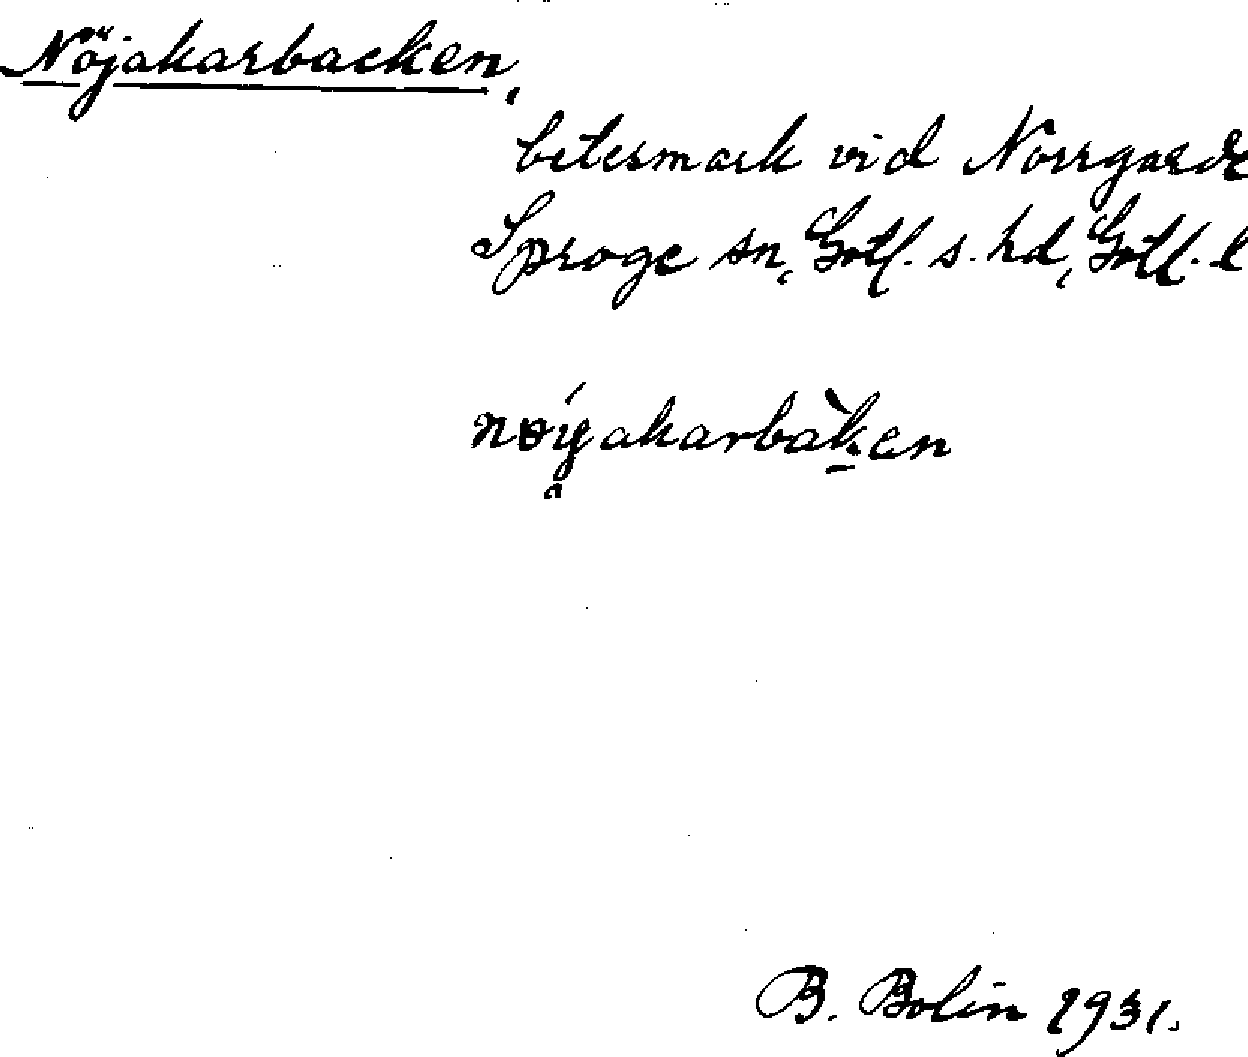 Nöjakarbacken,
betesmark vid Norrgarde
Sproge sn, Gotl. s. hd, Gotl. l
nɵiyakarbàken
B. Bolin 1931.